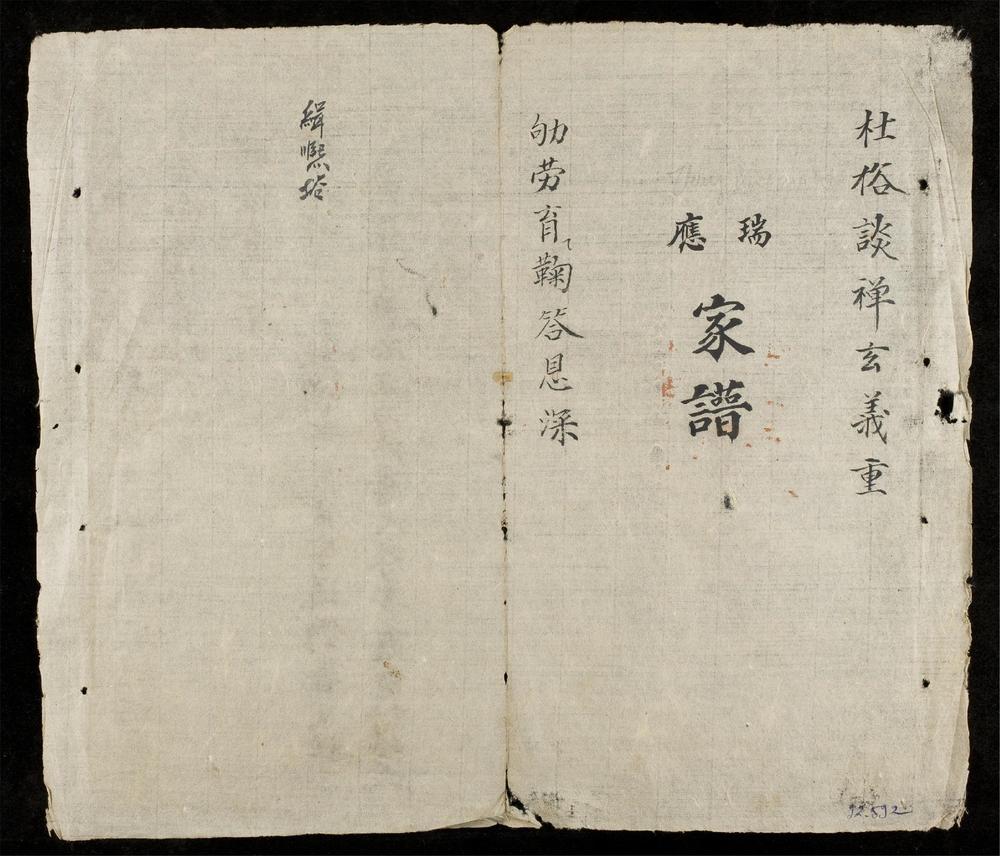 杜俗談禅玄義重
瑞應
家譜
劬劳育鞠答恩深
緝熈塔
92.592